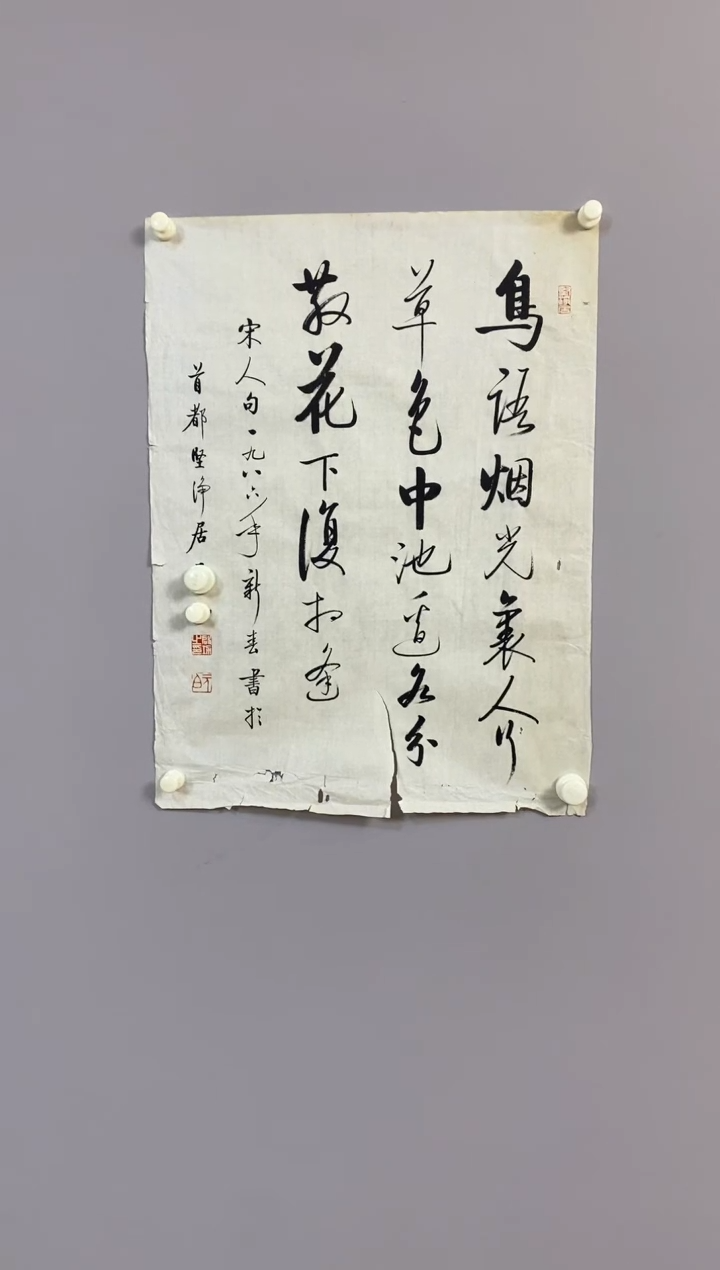 鳥语烟光裏人行
草色中池邊各分
散花下復相逢
宋人句一九八六年新春書於
首都堅净居